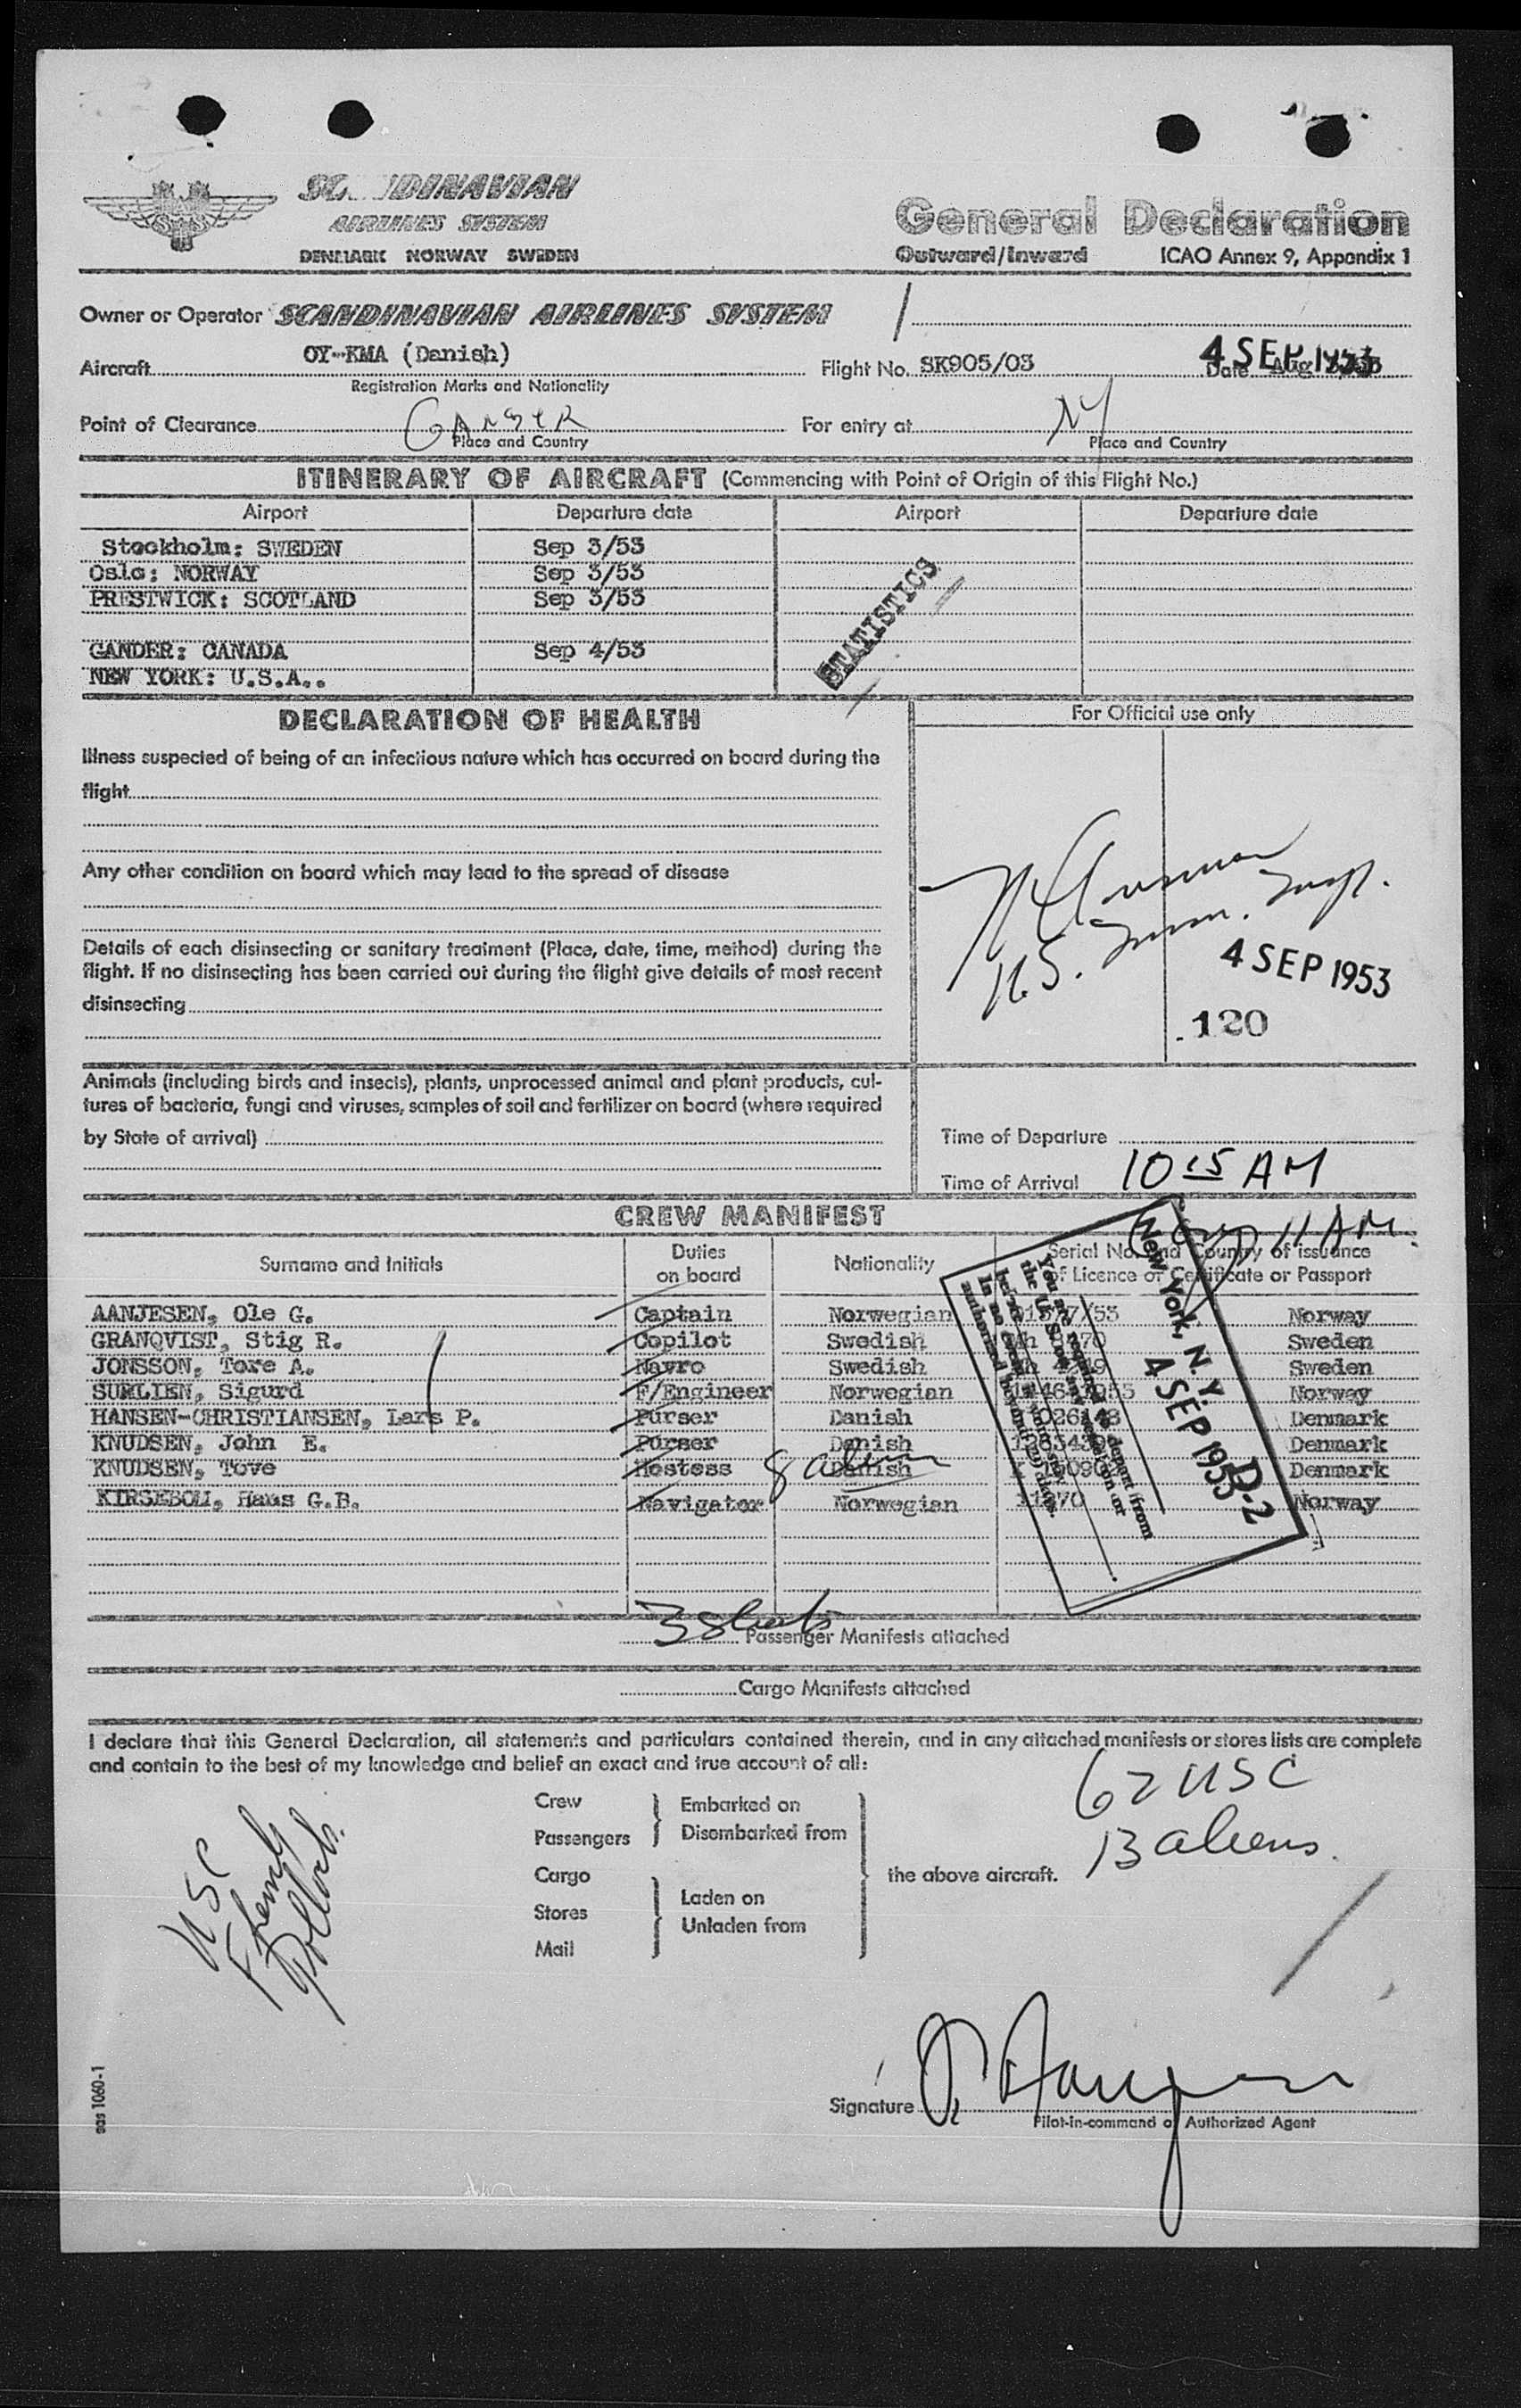 SAS
SCANDINAVIAN
AIRLINES SYSTEM
DENMARK NORWAY SWEDEN
General Declaration
Outward/Inward ICAO Annex 9, Appendix 1
Owner or Operator SCANDINAVIAN AIRLINES SYSTEM
Aircraft OY-KMA (Danish) Flight No. SK905/03 Date 4 SEP 1953
Registration Marks and Nationality
Point of Clearance GANDER For entry at NY
Place and Country Place and Country
ITINERARY OF AIRCRAFT (Commencing with Point of Origin of this Flight No.)
Airport Departure date Airport Departure date
Stockholm: SWEDEN Sep 3/53
Oslo: NORWAY Sep 3/53
PRESTWICK: SCOTLAND Sep 3/53
STATISTICS
GANDER: CANADA Sep 4/53
NEW YORK: U.S.A..
DECLARATION OF HEALTH
For Official use only
Illness suspected of being of an infectious nature which has occurred on board during the
flight
Any other condition on board which may lead to the spread of disease
Details of each disinsecting or sanitary treatment (Place, date, time, method) during the
flight. If no disinsecting has been carried out during the flight give details of most recent
disinsecting
U.S. Imm. Insp.
4 SEP 1953
120
Animals (including birds and insects), plants, unprocessed animal and plant products, cul-
tures of bacteria, fungi and viruses, samples of soil and fertilizer on board (where required
by State of arrival)
Time of Departure
Time of Arrival 10 15 AM
11 AM.
CREW MANIFEST
Surname and Initials Duties on board Nationality Serial No. and Country of issuance of Licence or Certificate or Passport
AANJESEN, Ole G. Captain Norwegian Norway
GRANQVIST, Stig R. Copilot Swedish Sweden
JONSSON, Tore A. Navro Swedish Sweden
SURLIEN, Sigurd F/Engineer Norwegian Norway
HANSEN-CHRISTIANSEN, Lars P. Purser Danish Denmark
KNUDSEN, John E. Purser Danish Denmark
KNUDSEN, Tove Hostess Danish Denmark
KIRSEBOM, Hans G.B. Navigator Norwegian Norway
8 alien
New York, N.Y.
4 SEP 1953
D-2
You are required to depart from
the U.S.
authorized beyond 29 days.
3 sheets Passenger Manifests attached
Cargo Manifests attached
I declare that this General Declaration, all statements and particulars contained therein, and in any attached manifests or stores lists are complete
and contain to the best of my knowledge and belief an exact and true account of all:
Crew
Passengers
Embarked on
Disembarked from
Cargo
Stores
Mail
Laden on
Unladen from
the above aircraft.
62 USC
13 aliens.
USC
Signature
Pilot-in-command or Authorized Agent
sas 1060-1